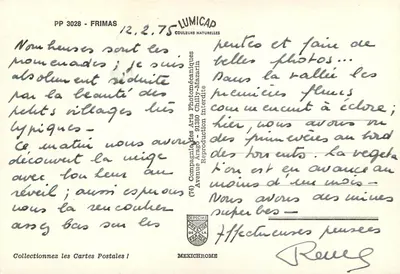 PP 3028 - FRIMAS
LUMICAP
COULEURS NATURELLES
12.2.75
Nombreuses sont les
promenades ; je suis
absolument séduite
par la beauté des
petits villages très
typiques -
Ce matin nous avons
découvert la neige
avec bonheur au
réveil ; aussi espérons
nous la rencontrer
assez bas sur les
(76) Compagnie des Arts Photomécaniques
Avenue Arago - 91380 Chilly-Mazarin
Reproduction Interdite
pentes et faire de
belles photos...
Dans la vallée les
premières fleurs
commencent à éclore ;
hier, nous avons vu
des primevères au bord
des torrents. La végéta
tion est en avance au
moins d'un mois -
Nous avons des mines
superbes -
Affectueuses pensées
Collectionnez les Cartes Postales !
MEXICHROME